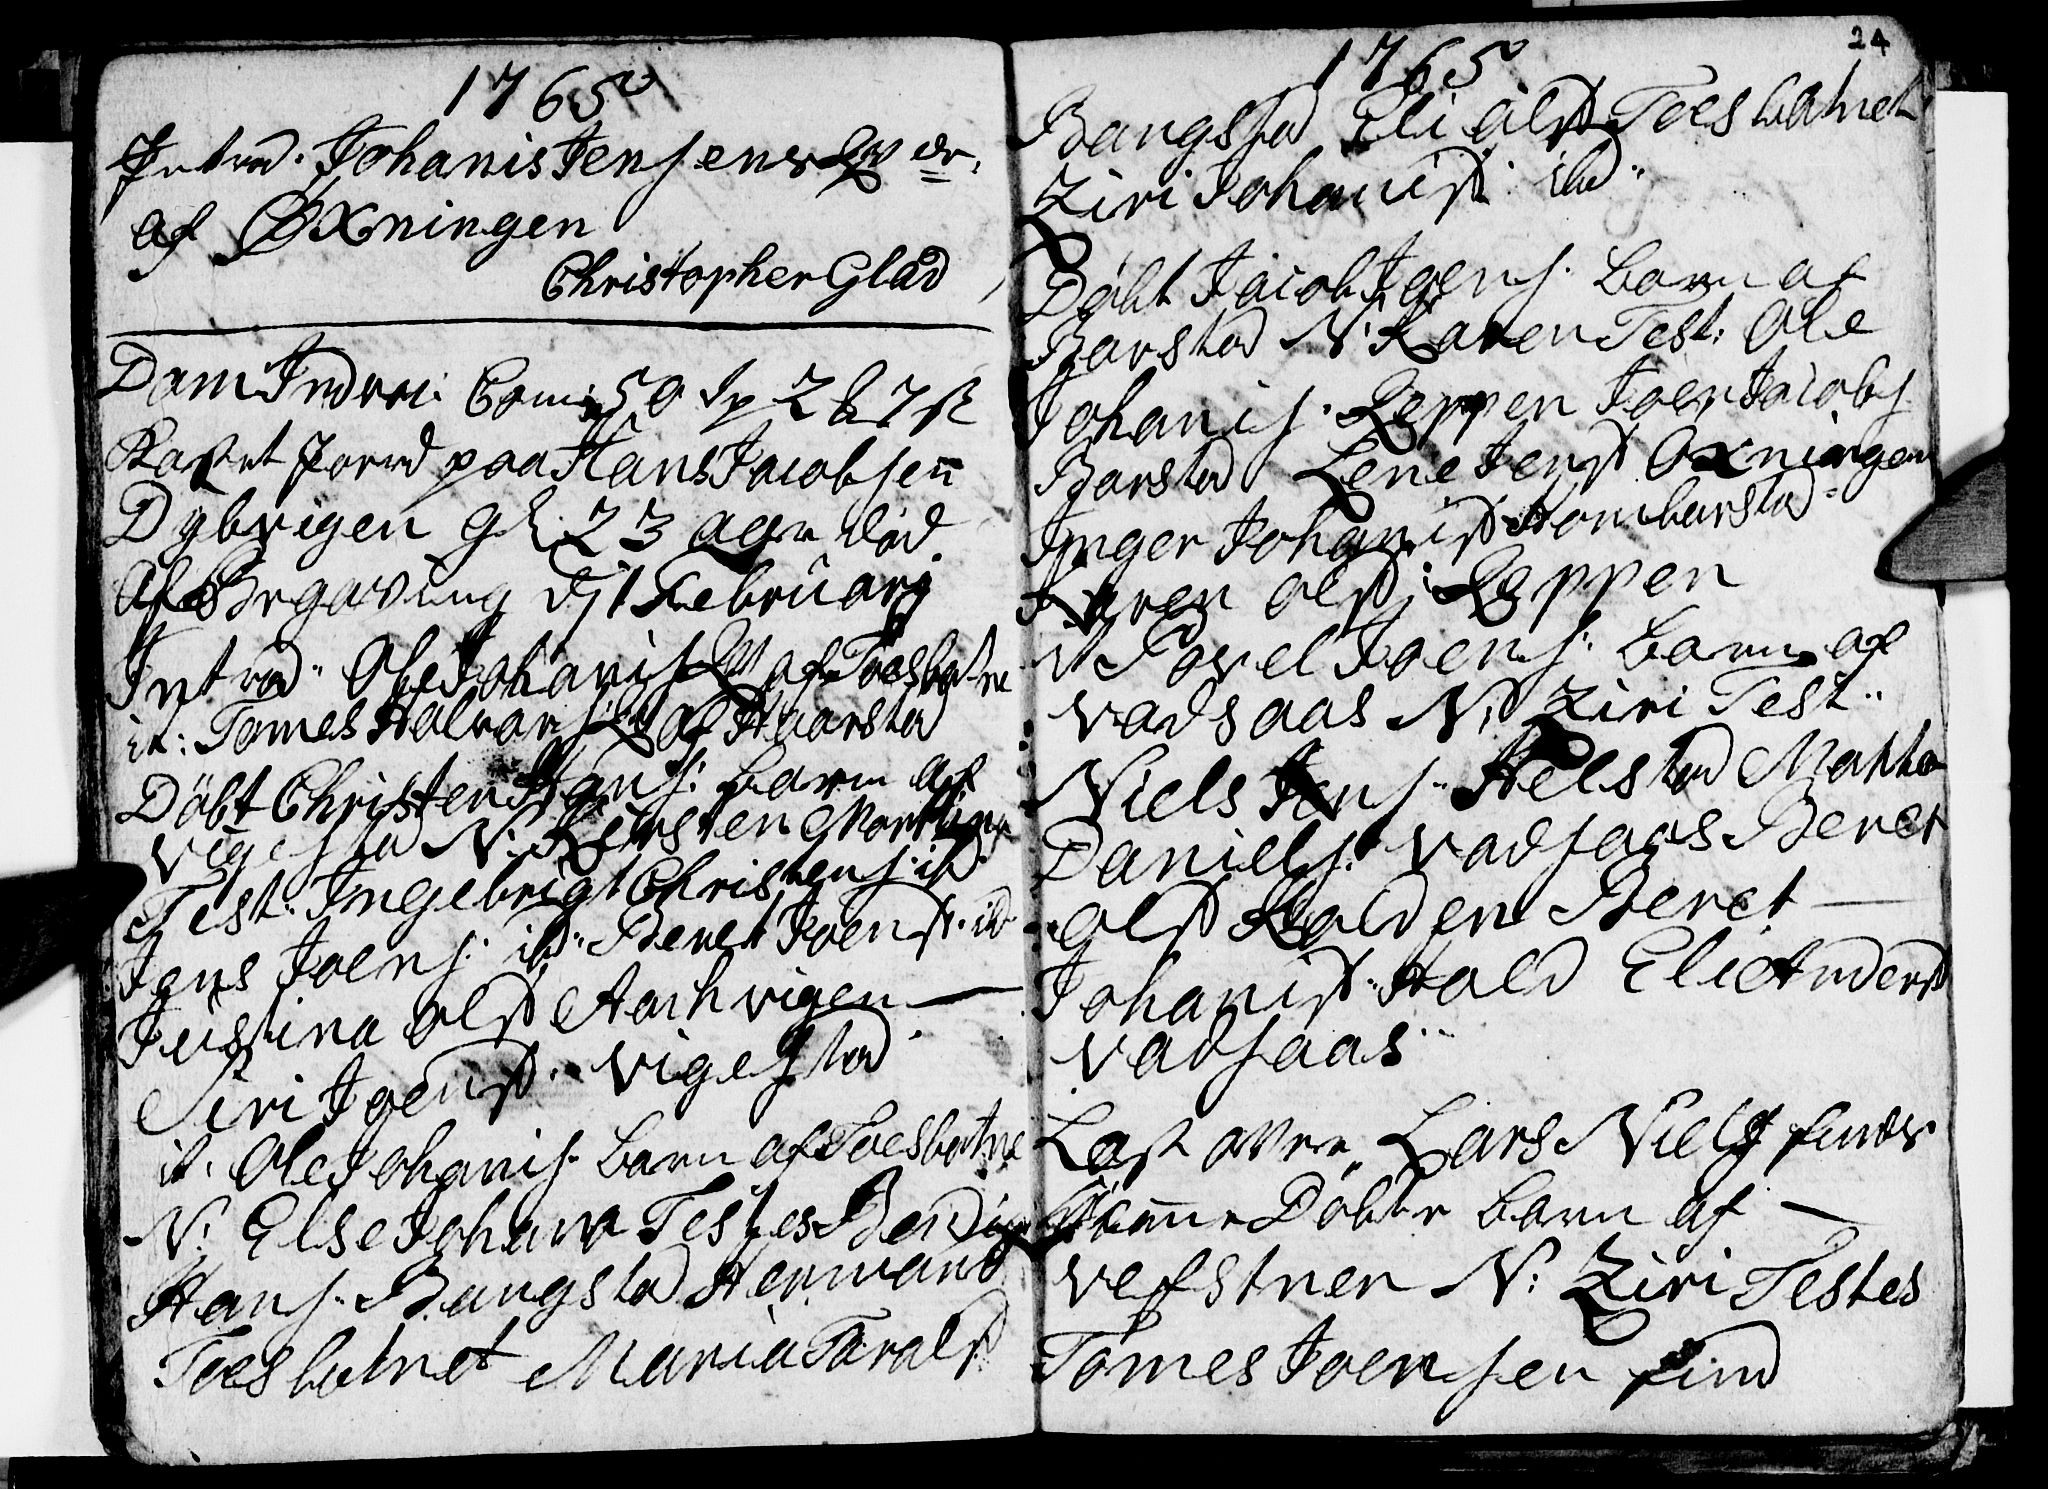 1765
Introd. Johanis Jensens Qv
af Øxningen
Christopher Glad
Dom Indvoc: Com: 50 Sp 2 b 7 ß
Kastet Jord paa Hans Jacobsen
Dybvigen gl. 23 aar død
af d 1 Februarj
Introd. Ole Johanis. Qv af Toesbatne
it: Tomes Halvars: Qv af Haarstad
Døbt Christen Hans. barn af
Vigestad N: Kirsten Martha
Test. Ingebrigt Christens. ib.
Jens Joens. ibd. Beret Joensd. ib
Justina Olsd Aachvigen —
Siri Joensd. Vigestad
it. Ole Johanis. barn af Toesbatne
N: Else Johana Testes
Hans. Bangstad Hermand
Toesbatnet Maria Taralsd
1765
24
Bangstad Eli Olsd Toesbatnet
Ziri Johanisd. ibd.
Døbt Jacob Joens. barn af
Barstad N: Karen Test: Ole
Johanis. Leppen Joen Jacobs
Barstad Lene Jensd Oxningen
Inger Johanisd Hombarstad
Karen Olsd: Leppen
it Povel Joens. barn af
Vadsaas N: Ziri Test.
Niels Jens. Helstad Matha
Daniels. Vadsaas Beret
Olsd Kolden Beret —
Johanisd. Hald Eli Andersd
Vadsaas
Læst over Lars Niels findes
hiemme Døbte barn af —
Vefstnen N: Ziri Testes
Tomes Joensen find